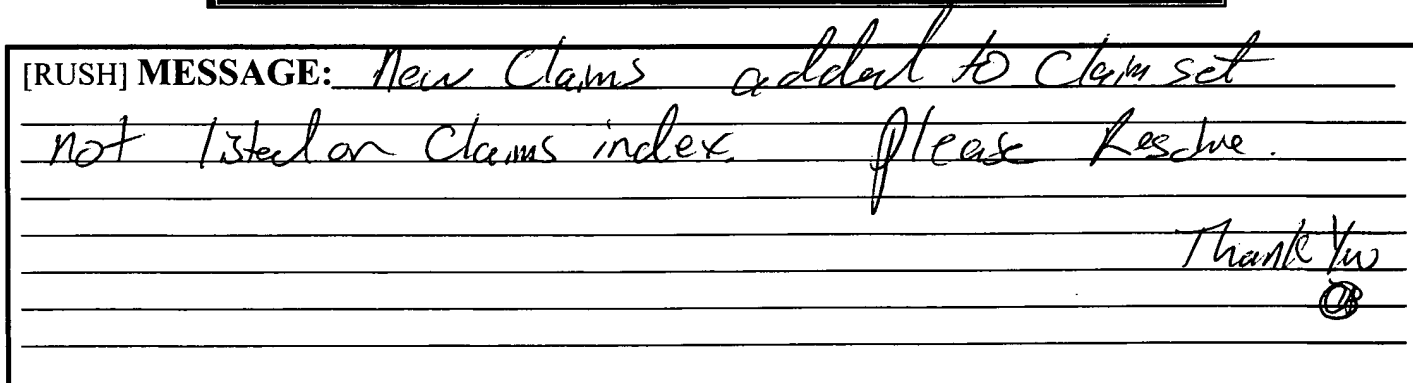 [RUSH] MESSAGE: New Claims added to Claim set
not listed on Claims index. Please Resolve.
Thank You